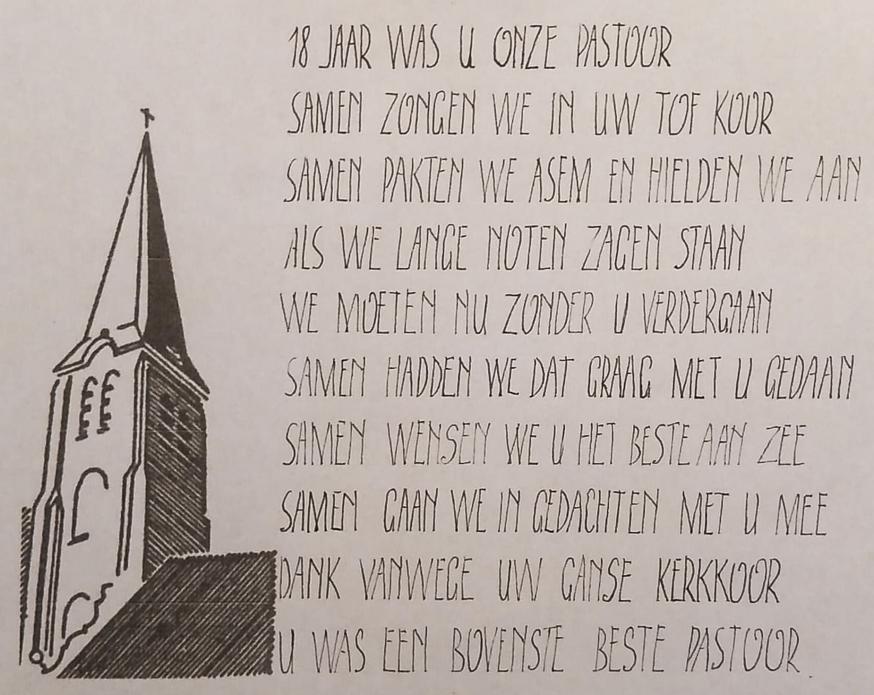 18 JAAR WAS U ONZE PASTOOR
SAMEN ZONGEN WE IN UW TOF KOOR
SAMEN PAKTEN WE ASEM EN HIELDEN WE AAN
ALS WE LANGE NOTEN ZAGEN STAAN
WE MOETEN NU ZONDER U VERDERGAAN
SAMEN HADDEN WE DAT GRAAG MET U GEDAAN
SAMEN WENSEN WE U HET BESTE AAN ZEE
SAMEN GAAN WE IN GEDACHTEN MET U MEE
DANK VANWEGE UW GANSE KERKKOOR
U WAS EEN BOVENSTE BESTE PASTOOR.